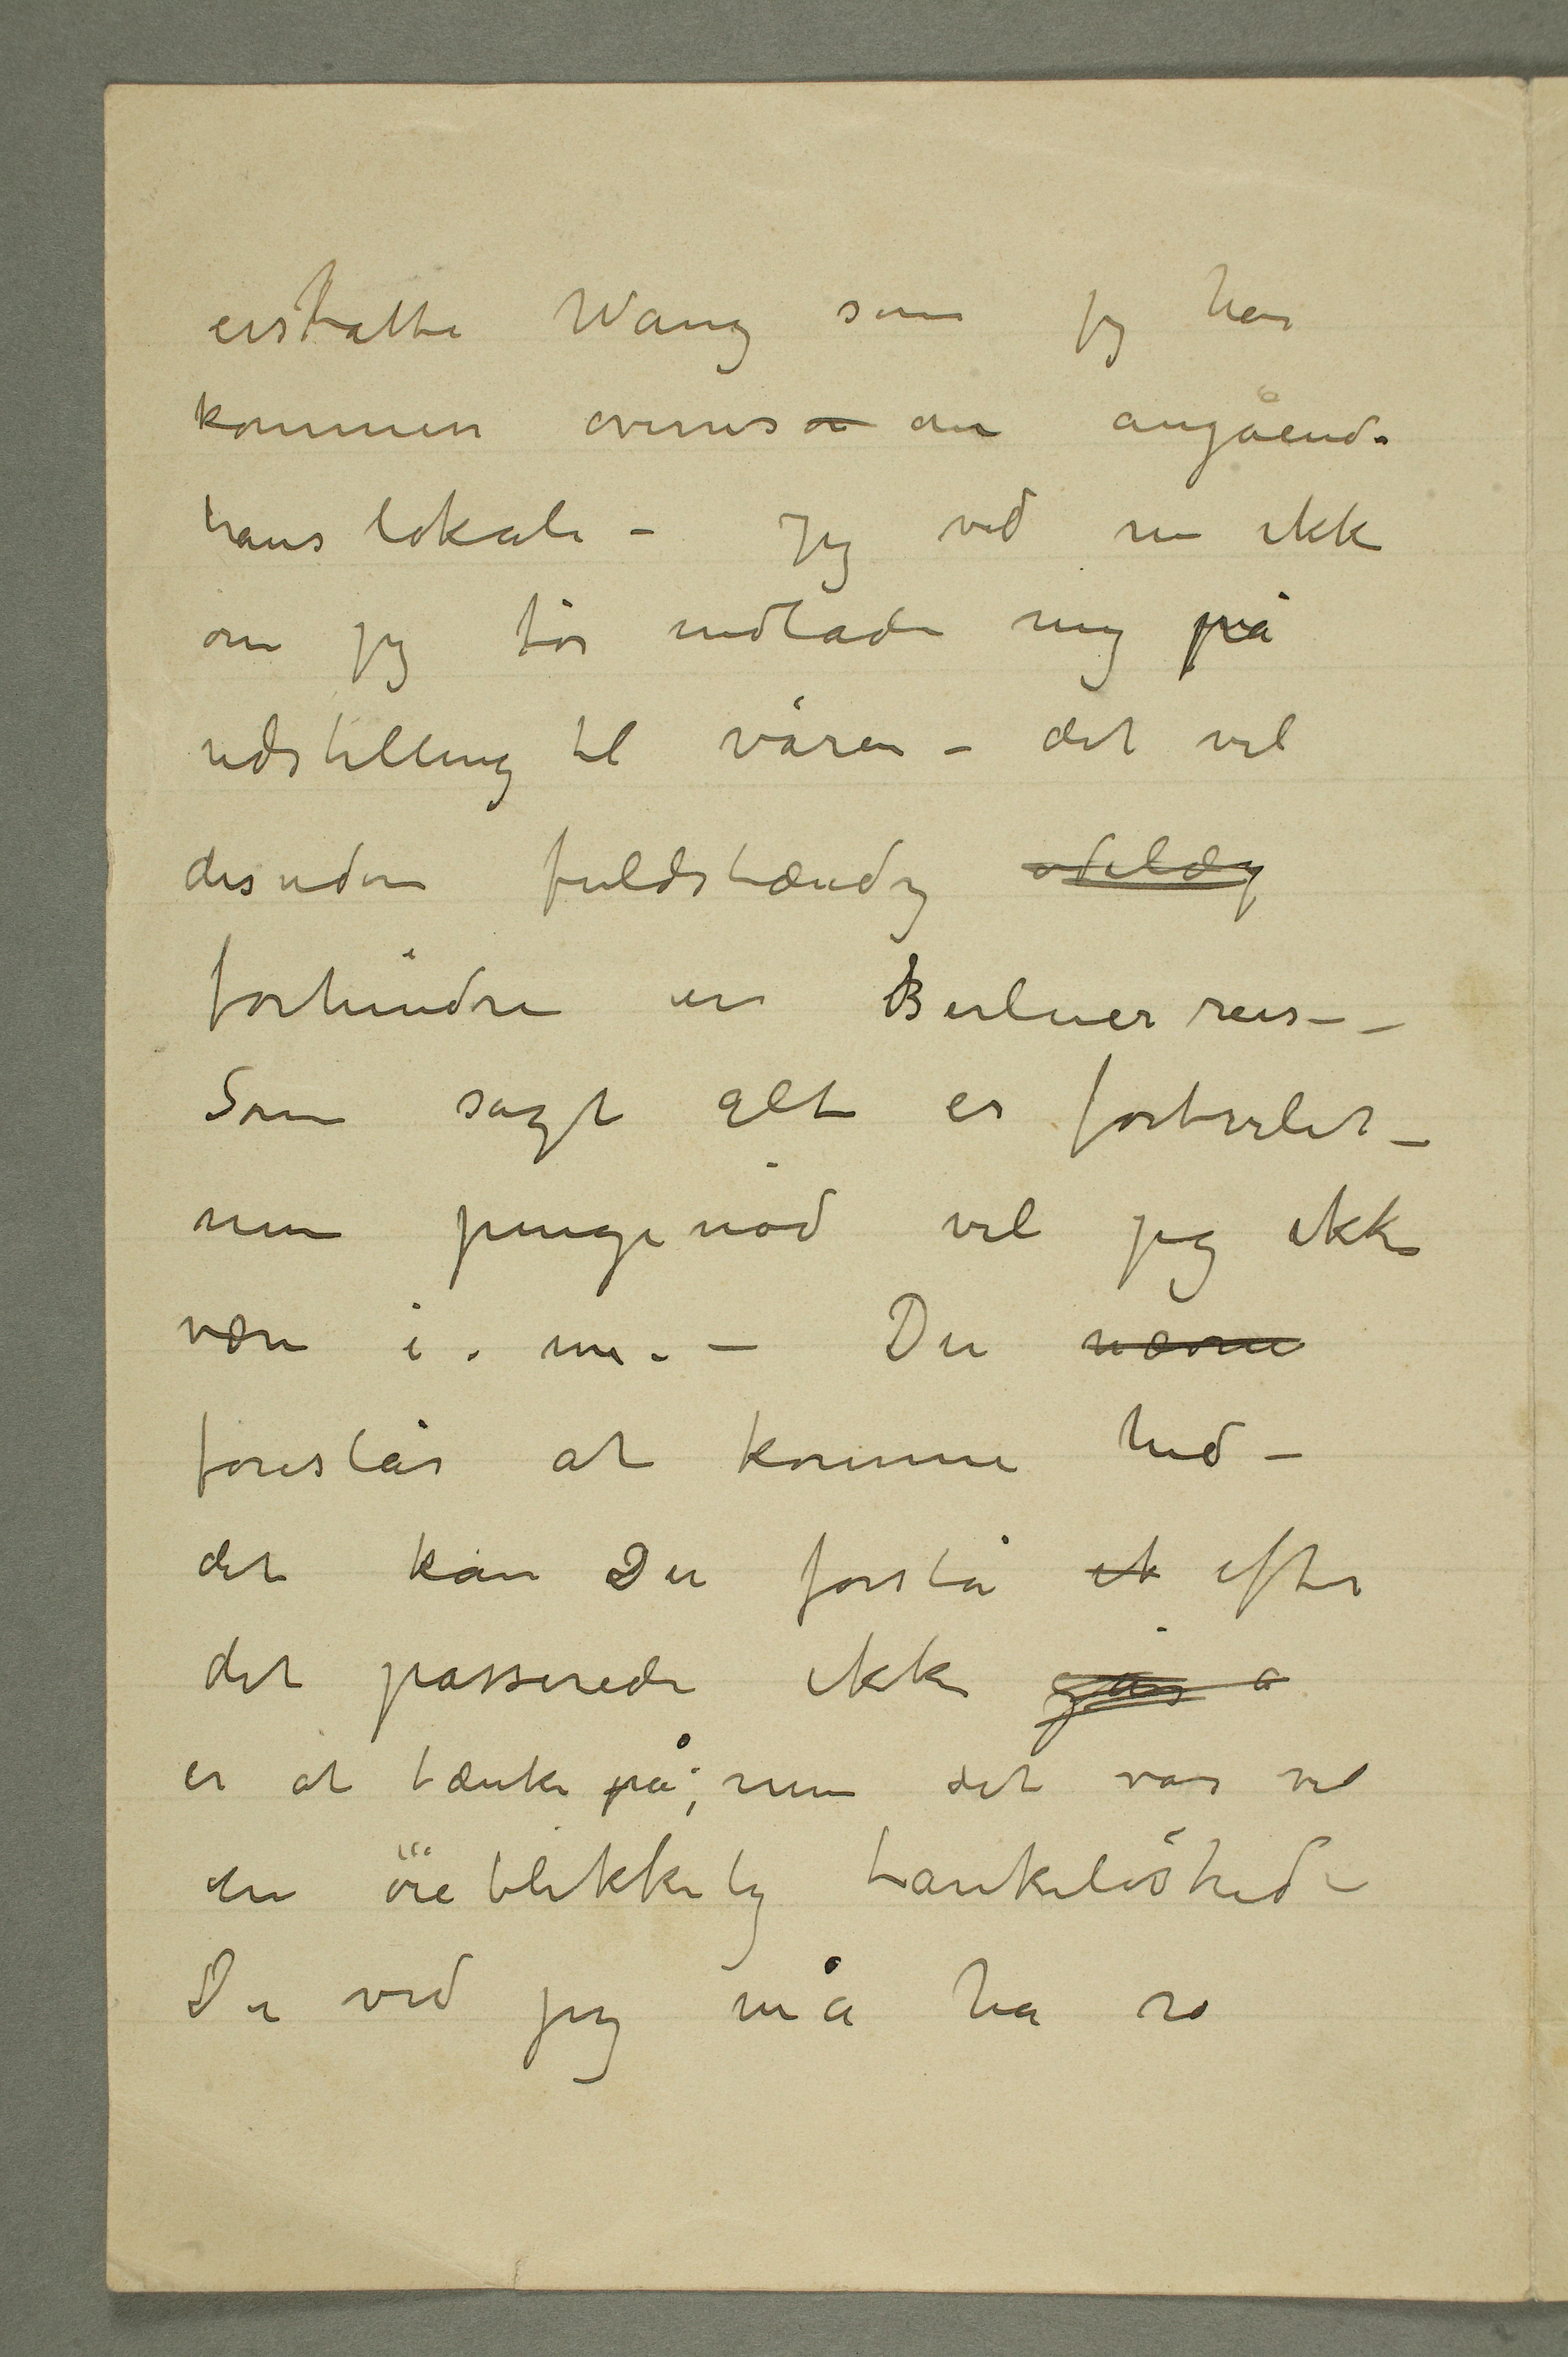 erstatte Wang som jeg har
kommen overens om angående
hans lokale – Jeg ved nu ikke
om jeg tör indlade mig på
udstilling til våren – det vil
desuden fuldstændig ødelæg
forhindre en Berlinerreis –
Som sagt alt er fortvilet –
men pengenöd vil jeg ikke
være i nu. – Du nævne
foreslår at komme hid –
det kan Du forstå et efter
det passerede ikke går a
er at tænke på; men det var vel
en öieblikkelig tankelöshed –
Du ved jeg må ha ro